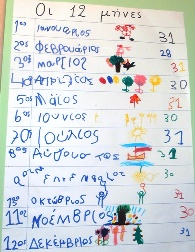 Οι 12 μήνες
1ος Ιανουάριος 31
2ος Φεβρουάριος 28
3ος Μάρτιος 31
4ος Απρίλιος 30
5ος Μάιος 31
6ος Ιούνιος 30
7ος Ιούλιος 31
8ος Αύγουστος 31
9ος 30
10ος Οκτώβριος 31
11ος Νοέμβριος 30
12ος Δεκέμβριος 31